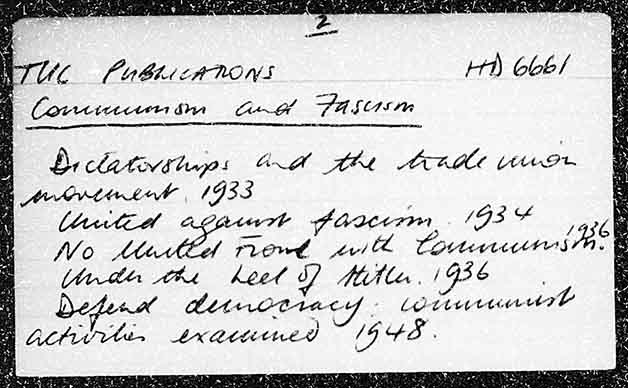 2
TUC PUBLICATIONS HD 6661
Communism and Fascism
Dictatorships and the trade union
movement. 1933
United against fascism. 1934
No United Front with Communism. 1936
Under the heel of Hitler. 1936
Defend democracy. communist
activities examined 1948.